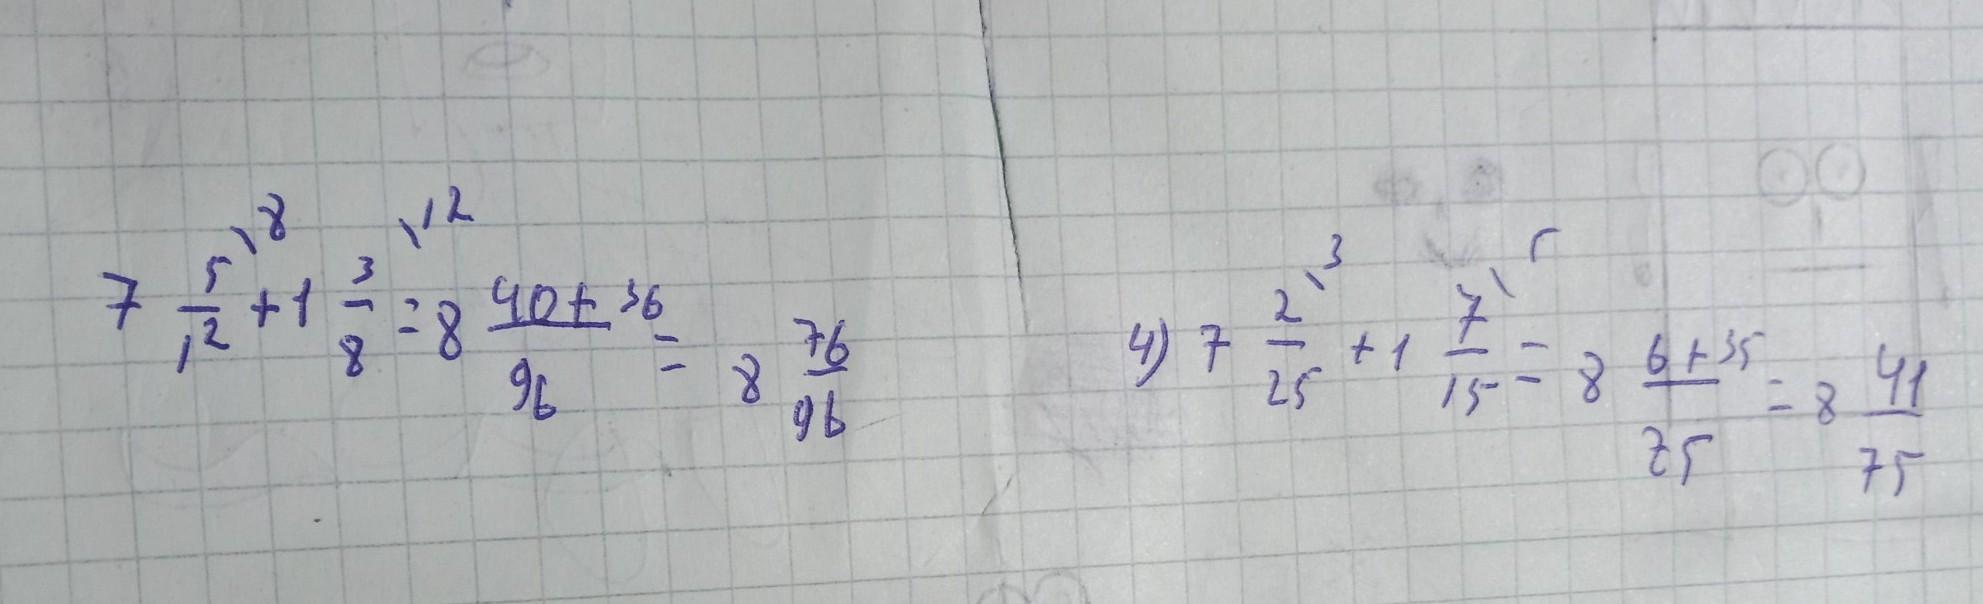 7 5/12 \8 + 1 3/8 \12 = 8 40+36/96 = 8 76/96
4) 7 2/25 \3 + 1 7/15 \5 = 8 6+35/75 = 8 41/75